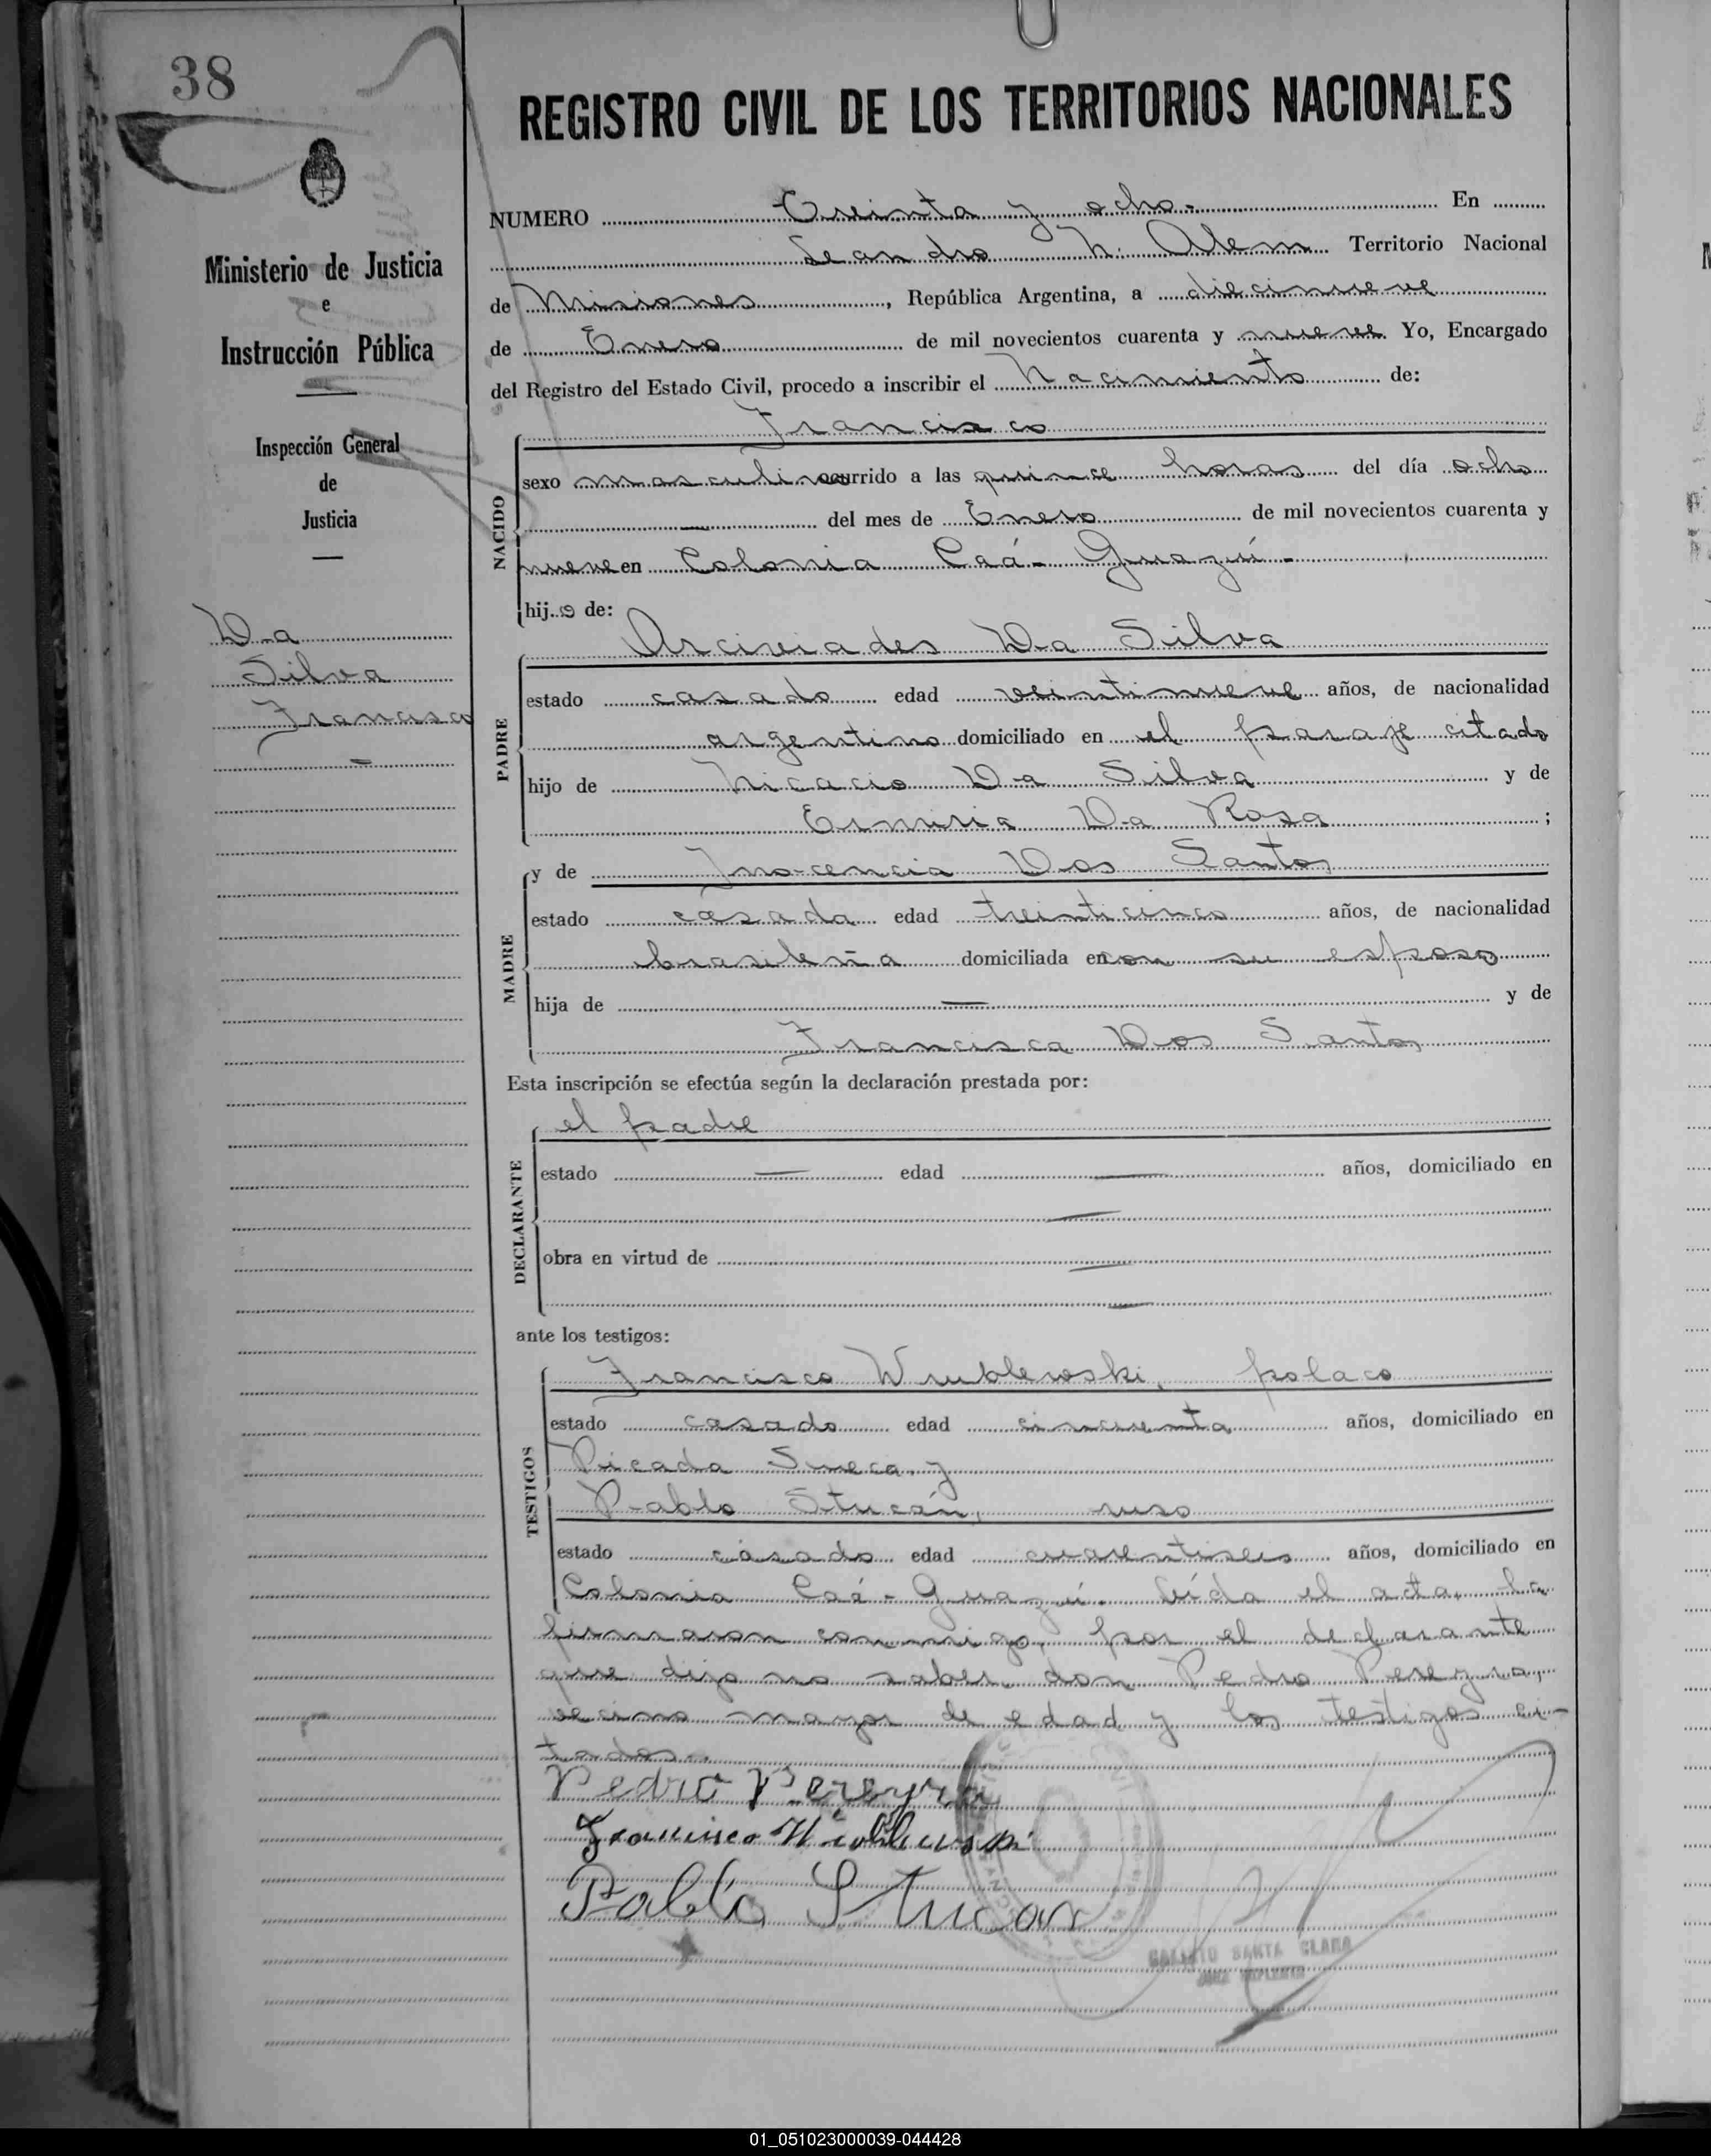 38
REGISTRO CIVIL DE LOS TERRITORIOS NACIONALES
Ministerio de Justicia
e
Instrucción Pública
Inspección General
de
Justicia
Da
Silva
Francisco
NUMERO Treinta y ocho.- En
Leandro N. Alem Territorio Nacional
de Misiones, República Argentina, a diecinueve
de Enero de mil novecientos cuarenta y nueve Yo, Encargado
del Registro del Estado Civil, procedo a inscribir el Nacimiento de:
NACIDO
Francisco
sexo masculino ocurrido a las quince horas del día ocho
— del mes de Enero de mil novecientos cuarenta y
nueve en Colonia Caá-Guazú.-
hijo de:
PADRE
Arciriades Da Silva
estado casado edad veintinueve años, de nacionalidad
argentino domiciliado en el paraje citado
hijo de Nicacio Da Silva y de
Ermiria Da Rosa ;
MADRE
y de Inocencia Dos Santos
estado casada edad treinticinco años, de nacionalidad
brasileña domiciliada en con su esposo
hija de — y de
Francisca Dos Santos
Esta inscripción se efectúa según la declaración prestada por:
DECLARANTE
el padre
estado — edad — años, domiciliado en
—
obra en virtud de —
—
ante los testigos:
TESTIGOS
Francisco Wrublewski, polaco
estado casado edad cincuenta años, domiciliado en
Picada Sueca, y
Pablo Stucán, ruso
estado casado edad cuarentiseis años, domiciliado en
Colonia Caá-Guazú. Leída el acta, la
firmaron conmigo, por el declarante
que dijo no saber, don Pedro Pereyra,
vecino mayor de edad y los testigos ci-
tados.
Pedro Pereyra
Francisco Wrublewski
Pablo Stucan
CALIXTO SANTA CLARA
JUEZ SUPLENTE
01_051023000039-044428